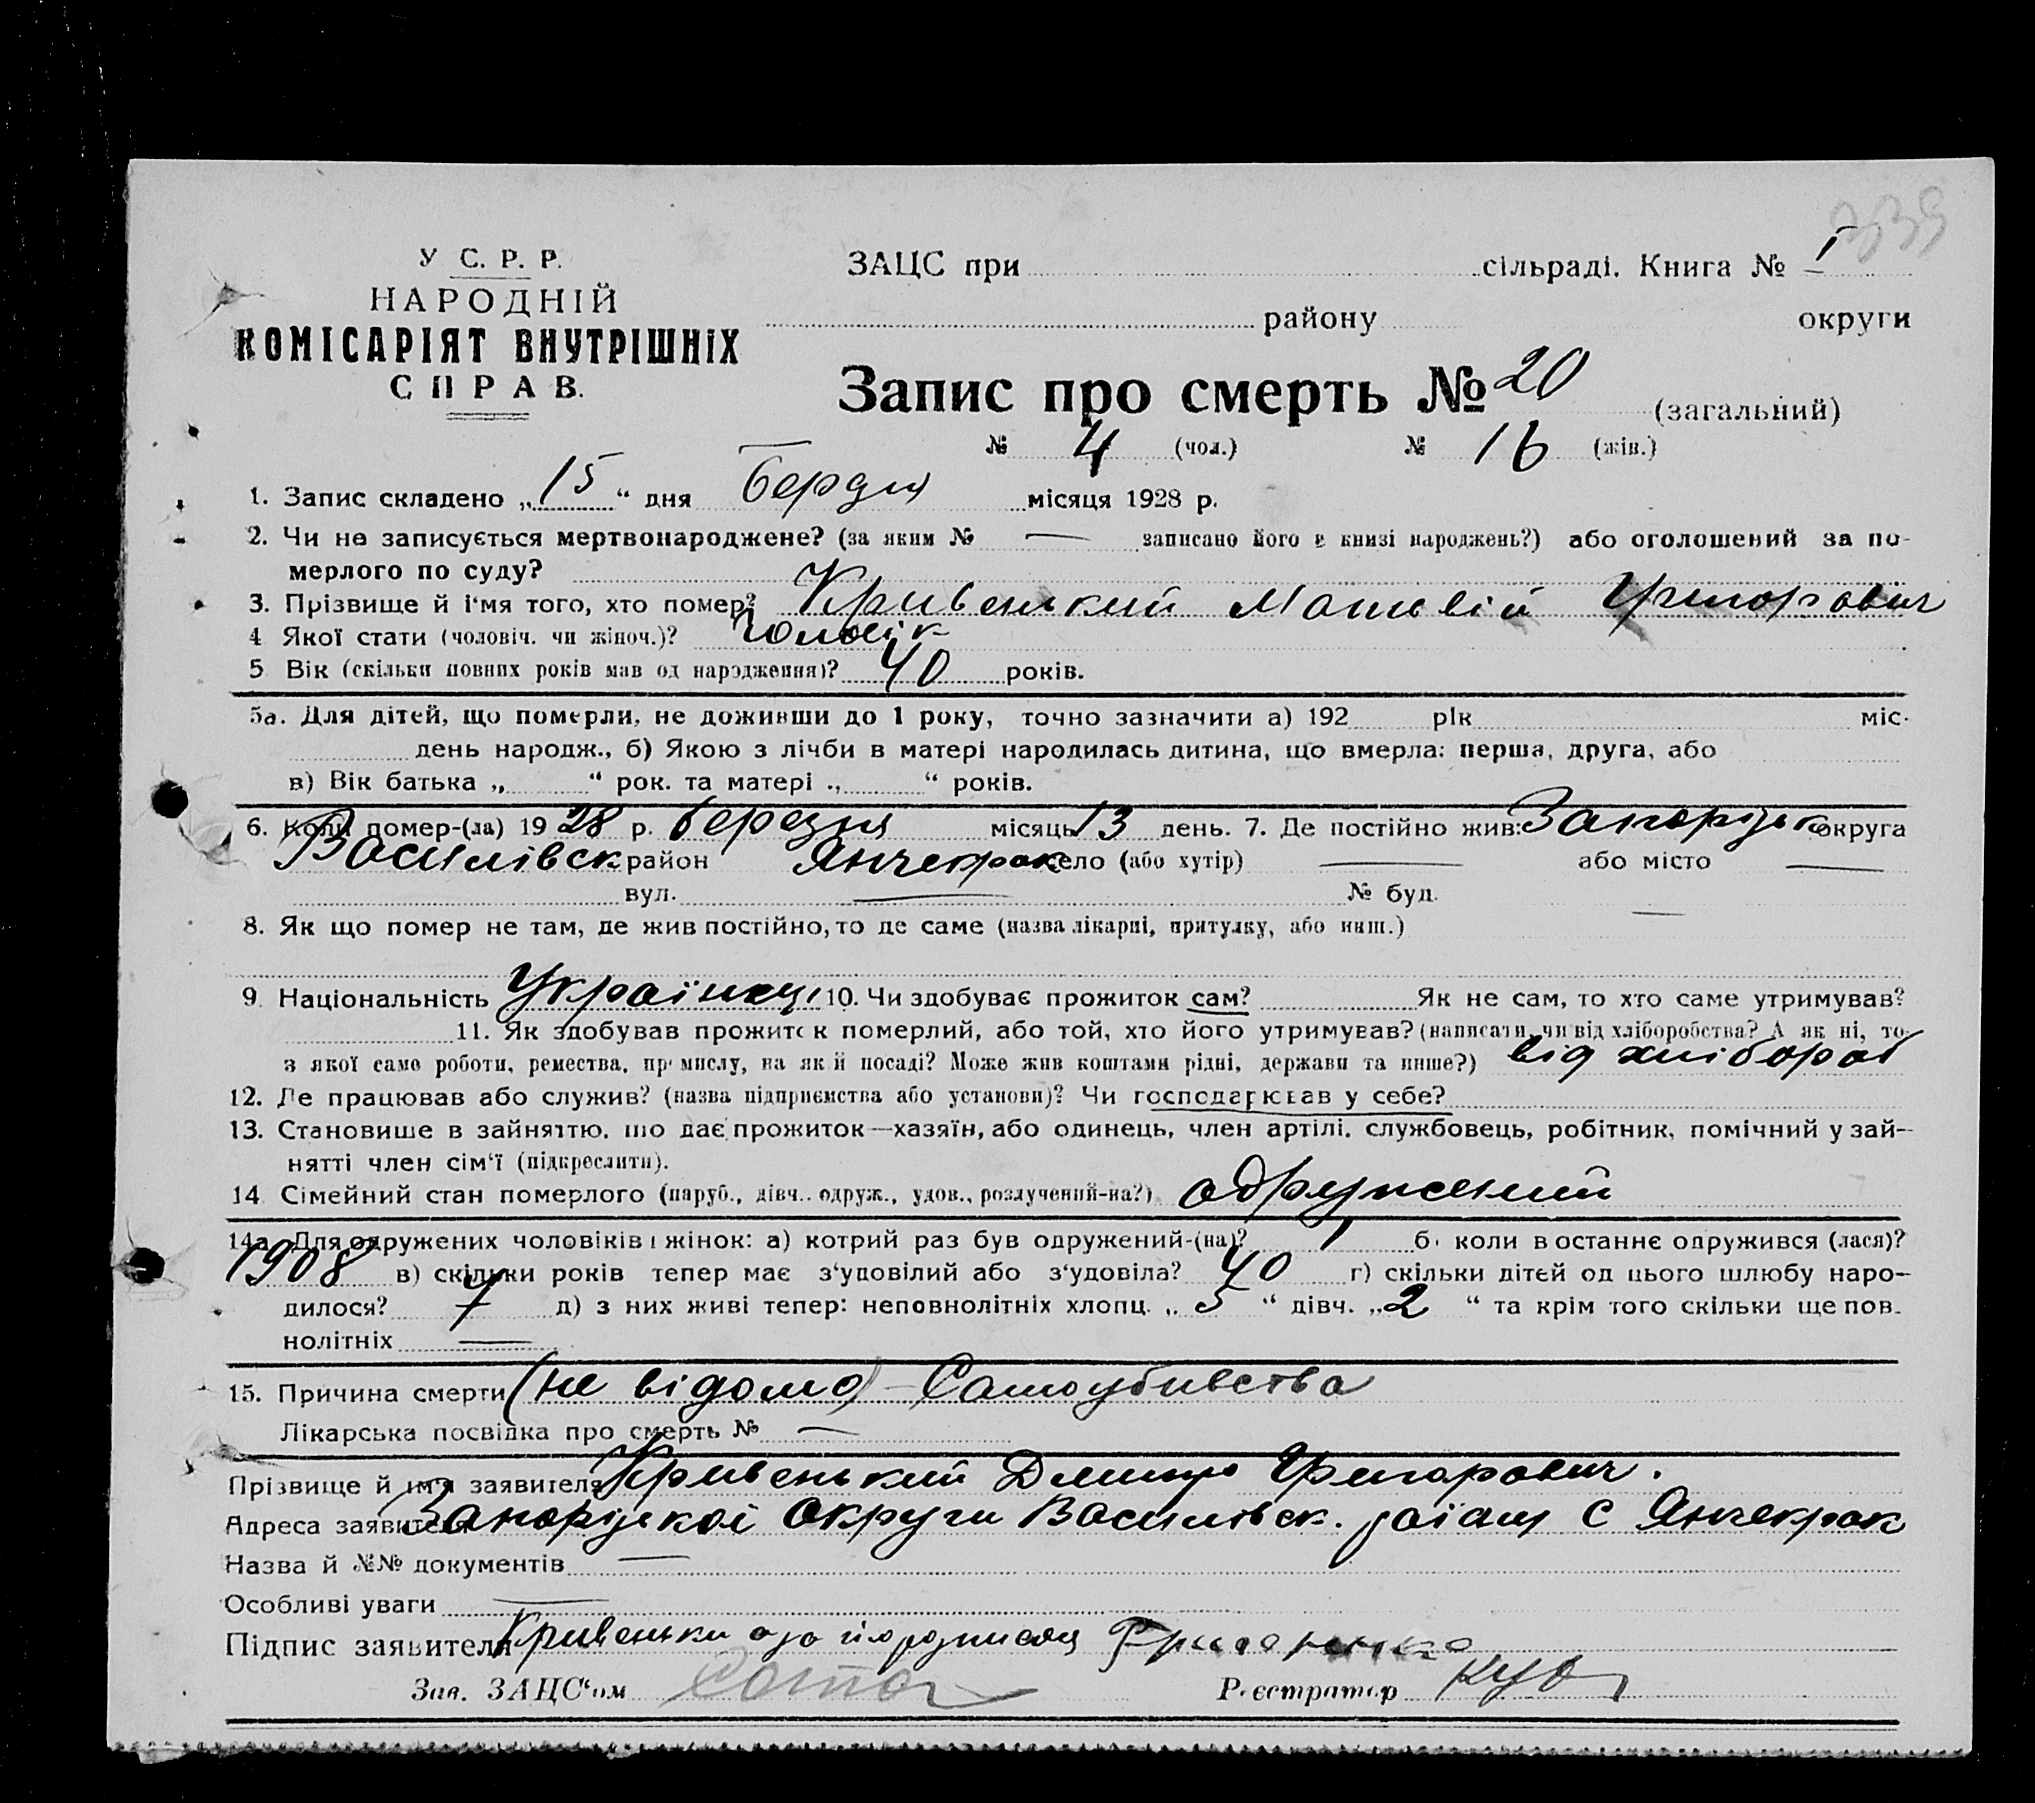 339
У С. Р. Р.
НАРОДНІЙ
КОМІСАРІЯТ ВНУТРІШНІХ
СПРАВ.
ЗАЦС при сільраді. Книга № I
району округи
Запис про смерть № 20 (загальний)
№ 4 (чол.) № 16 (жін.)
1. Запис складено „15“ дня Бердня місяця 1928 р.
2. Чи не записується мертвонароджене? (за яким № — записано його в книзі народжень?) або оголошений за по-
мерлого по суду?
3. Прізвище й і'мя того, хто помер? Кривенький Матвій Григорович
4 Якої стати (чоловіч. чи жіноч.)? Чоловік
5 Вік (скільки повних років мав од народження)? 40 років.
5а. Для дітей, що померли, не доживши до 1 року, точно зазначити а) 192 рік міс.
день народж., б) Якою з лічби в матері народилась дитина, що вмерла: перша, друга, або
в) Вік батька „ “ рок. та матері „ “ років.
6. Коли помер-(ла) 1928 р. березня місяць 13 день. 7. Де постійно жив: Запоріжьк округа
Василівск район Янчекрак село (або хутір) — або місто —
вул. — № буд. —
8. Як що помер не там, де жив постійно, то де саме (назва лікарні, притулку, або инш.)
9. Національність Українець 10. Чи здобуває прожиток сам? Як не сам, то хто саме утримував?
11. Як здобував прожиток померлий, або той, хто його утримував? (написати, чи від хліборобства? А як ні, то
з якої саме роботи, ремества, промислу, на якій посаді? Може жив коштами рідні, держави та инше?) від хлібороб
12. Де працював або служив? (назва підприємства або установи)? Чи господарював у себе?
13. Становище в зайняттю, що дає прожиток—хазяїн, або одинець, член артілі, службовець, робітник, помічний у зай-
нятті член сім'ї (підкреслити).
14. Сімейний стан померлого (паруб., дівч., одруж., удов., розлучений-на?) одружений
14а. Для одружених чоловіків і жінок: а) котрий раз був одружений-(на)? 1 б) коли востаннє одружився (лася)?
1908 в) скільки років тепер має з'удовілий або з'удовіла? 40 г) скільки дітей од цього шлюбу наро-
дилося? 7 д) з них живі тепер: неповнолітніх хлопц. „5“ дівч. „2“ та крім того скільки ще пов-
нолітніх —
15. Причина смерти (не відомо) – Самоубивства
Лікарська посвідка про смерть № —
Прізвище й им'я заявителя Кривенький Дмитро Григорович.
Адреса заявителя Запоріжької Округи Василівск. раіану с Янчекрак
Назва й №№ документів —
Особливі уваги —
Підпис заявителя Кривеньки
Зав. ЗАЦС'ом
Реєстратор